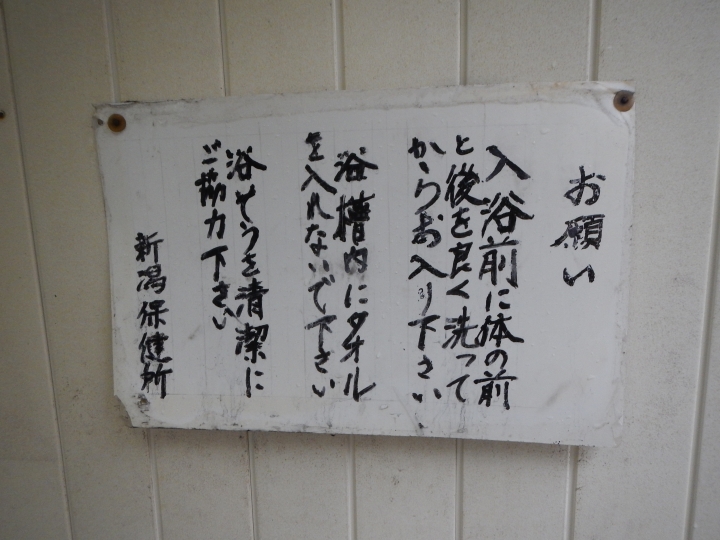 お願い
入浴前に体の前
と後を良く洗って
からお入り下さい
浴槽内にタオル
を入れないで下さい
浴そうを清潔に
ご協力下さい
新潟保健所